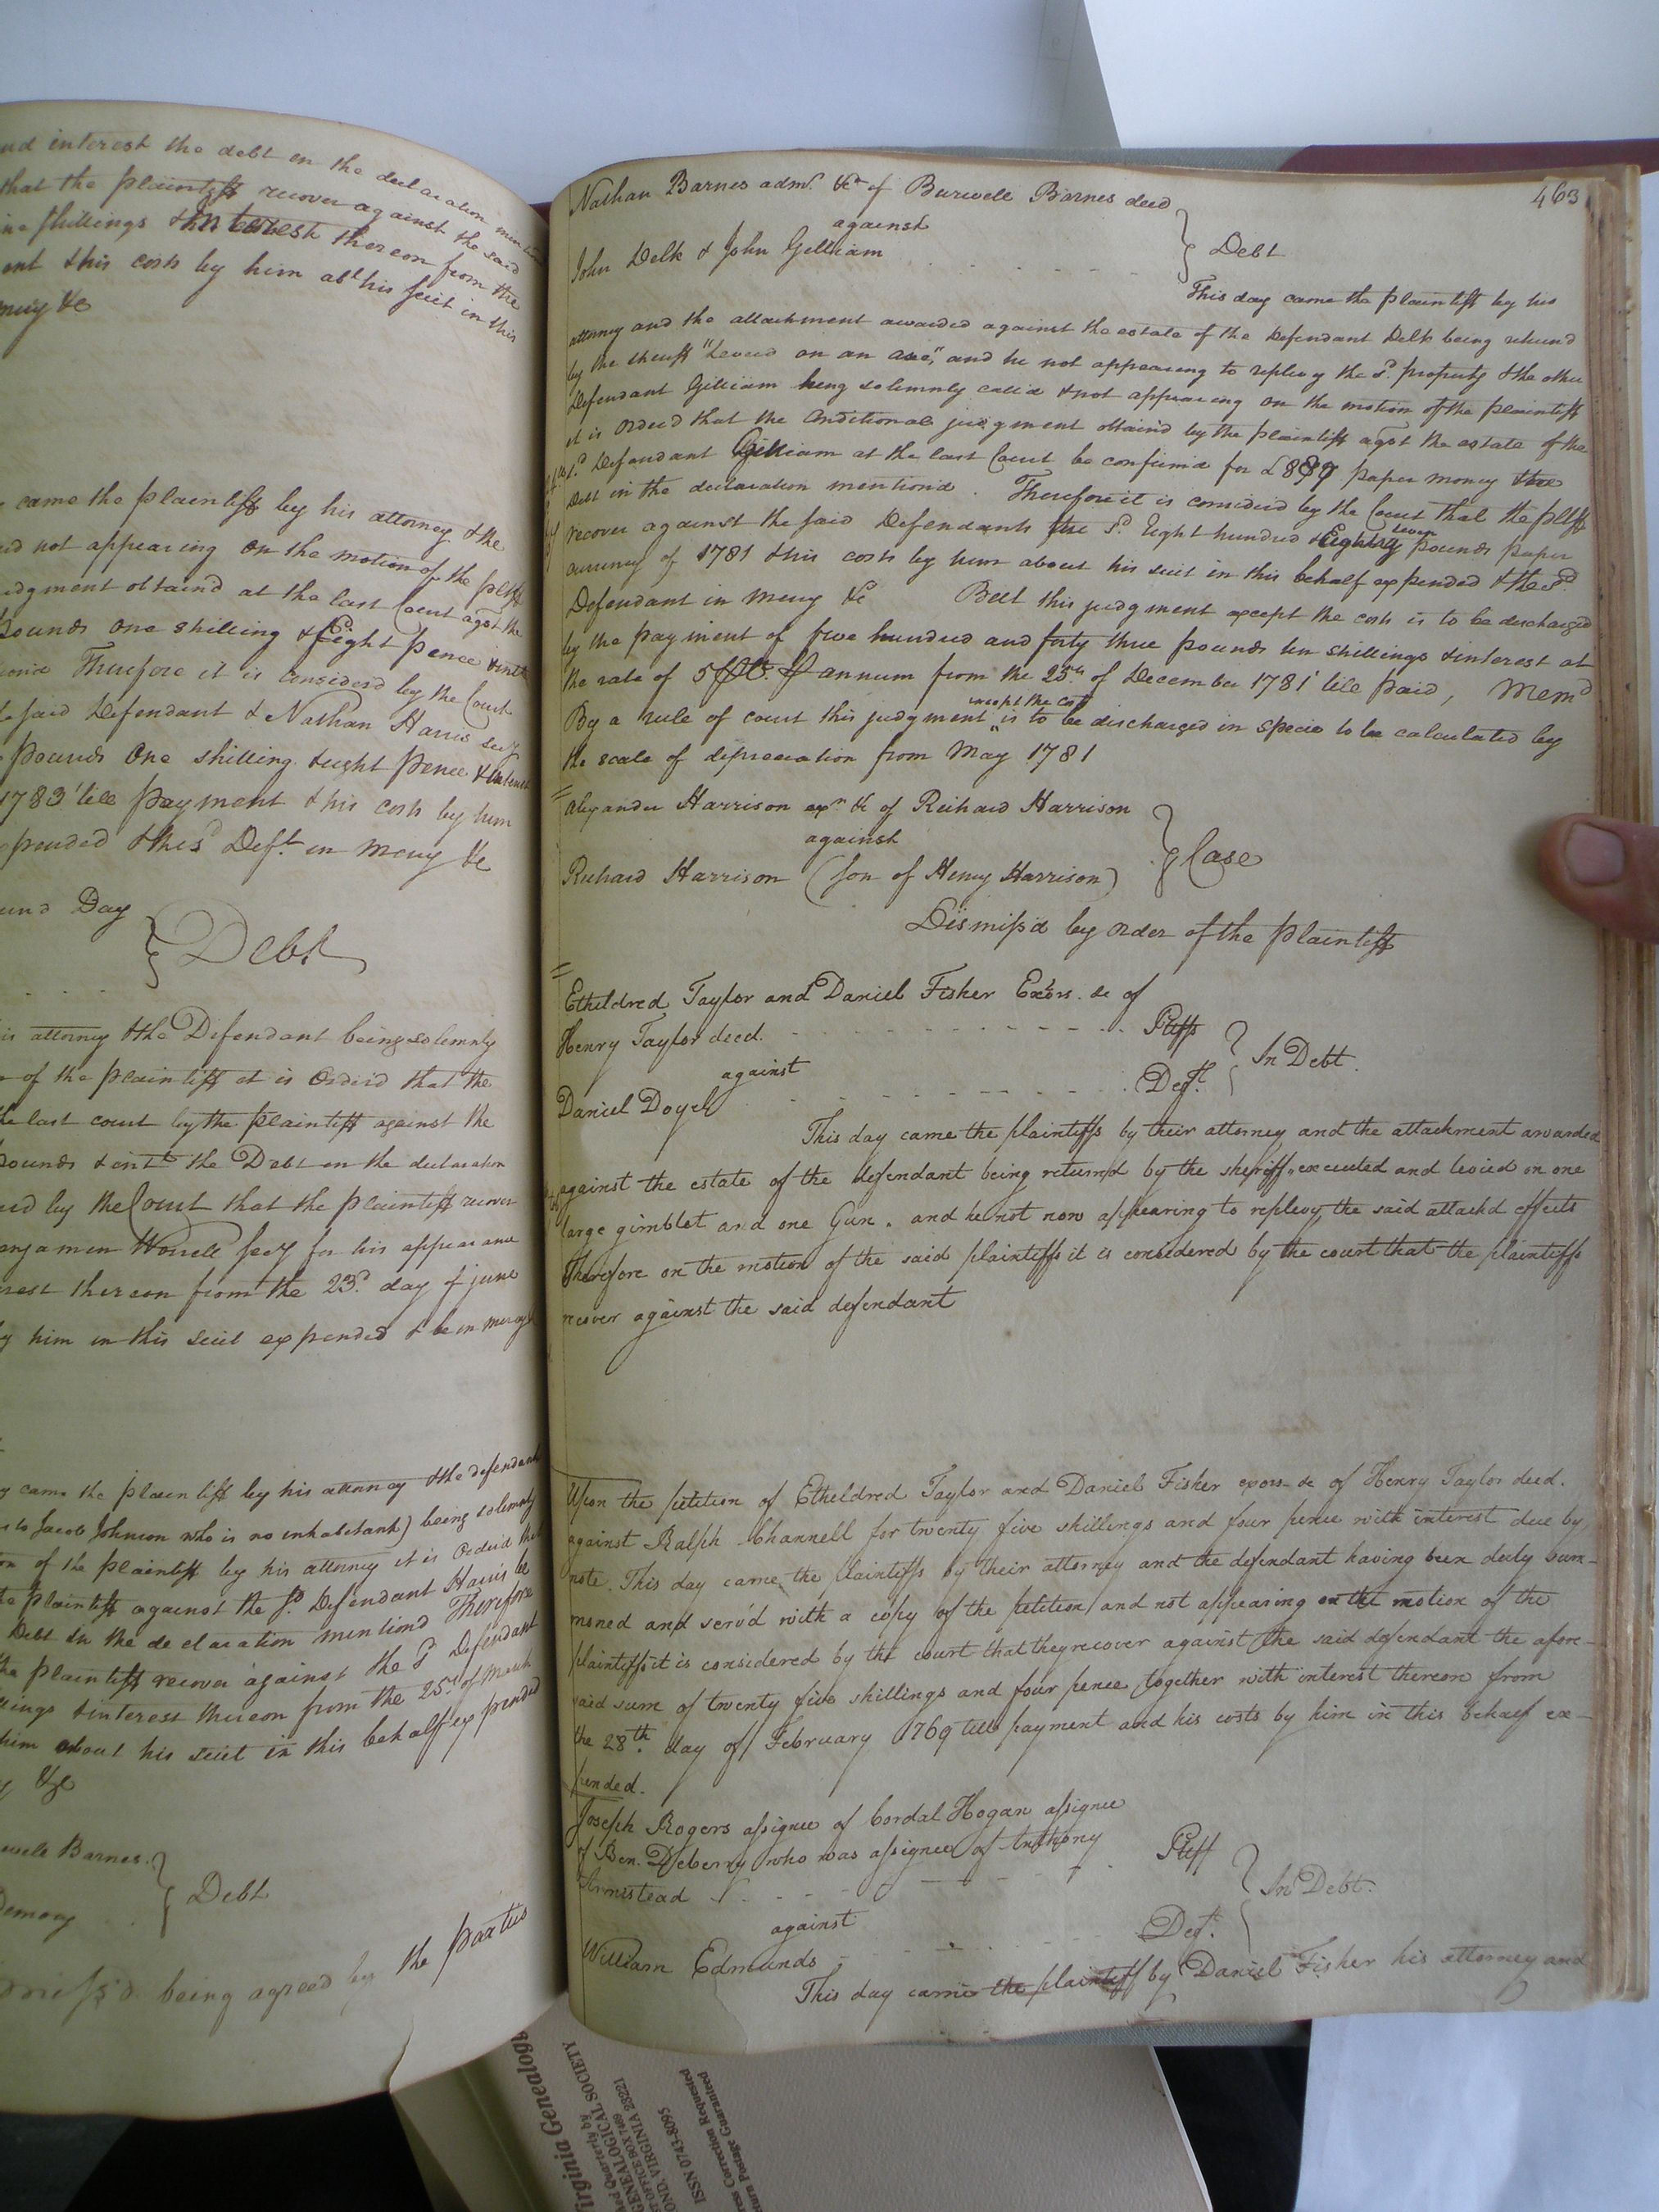 nd interest the debt in the declaration mention
that the plaintiff recover against the said
ne shillings & interest thereon from the
ent & his costs by him abt his suit in this
mercy &c
came the plaintiff by his attorney & the
and not appearing on the motion of the pltff
udgment obtain'd at the last Court agst the
pounds one shilling & Eight pence & int
Therefore it is Considerd by the Court
said Defendant & Nathan Harris secy
pounds One shilling & eight pence & interest
1783 till payment & his costs by him
pended & the sd Deft. in mercy &c
und Day
Debt
is attorney & the Defendant being solemnly
of the plaintiff it is Orderd that the
the last court by the plaintiff against the
pounds & intt the Debt in the declaration
erd by the Court that the plaintiff recover
enjamin Worrell secy for his appearance
rest thereon from the 23d day of june
by him in this suit expended & be in mercy
y came the plaintiff by his attorney & the defendant
to Jacob Johnson who is no inhabitant) being solemnly
on of the plaintiff by his attorney it is Orderd that
the plaintiff against the sd. Defendant Harris be
Debt in the declaration mentiond Therefore
the plaintiff recover against the sd Defendant
llings & interest thereon from the 25th of March
him about his suit in this behalf expended
y &c
well Barnes
Debt
Demory
Dismiss'd being agreed by the parties
463
Nathan Barnes admr. &ca of Burwell Barnes decd
against
Debt
John Delk & John Gilliam
This day came the plaintiff by his
attorney and the attachment awarded against the estate of the Defendant Delk being returnd
by the sheriff "Levied on an axe", and he not appearing to replevy the sd. property & the other
Defendant Gilliam being solemnly call'd & not appearing on the motion of the plaintiff
it is Order'd that the Conditional judgment obtain'd by the plaintiff agst the estate of the
sd Defendant Gilliam at the last Court be confirm'd for £887 paper money the
Debt in the declaration mention'd. Therefore it is considerd by the Court that the pltff
recover against the said Defendants the sd. Eight hundred & Eighty seven pounds paper
currency of 1781 & his costs by him about his suit in this behalf expended & the sd
Defendant in mercy &c But this judgment except the costs is to be discharged
by the payment of five hundred and forty three pounds ten shillings & interest at
the rate of 5 PCt. P annum from the 25th of December 1781 till paid, Memd
except the costs
By a rule of court this judgment is to be discharged in specie to be calculated by
the scale of depreciation from May 1781
Alexander Harrison exr &c of Richard Harrison
against
Case
Richard Harrison (son of Henry Harrison)
Dismiss'd by order of the plaintiff
Etheldred Taylor and Daniel Fisher Exors. &c of
Henry Taylor decd. Pltffs
In Debt.
against
Daniel Doyel Deft.
This day came the plaintiffs by their attorney and the attachment awarded
against the estate of the defendant being returnd by the sheriff, executed and levied on one
large gimblet and one Gun. and he not now appearing to replevy the said attachd effects
Therefore on the motion of the said plaintiffs it is considered by the court that the plaintiffs
recover against the said defendant
Upon the petition of Etheldred Taylor and Daniel Fisher exors &c of Henry Taylor decd.
against Ralph Channell for twenty five shillings and four pence with interest due by
note. This day came the plaintiffs by their attorney and the defendant having been duly sum-
moned and serv'd with a copy of the petition and not appearing on the motion of the
plaintiffs it is considered by the court that they recover against the said defendant the afore-
said sum of twenty five shillings and four pence together with interest thereon from
the 28th. day of February 1769 till payment and his costs by him in this behalf ex-
pended.
Joseph Rogers assignee of Cordal Hogan assignee
of Ben. Deberry who was assignee of Anthony
Armistead Pltff
In Debt.
against
William Edmunds Deft.
This day came the plaintiff by Daniel Fisher his attorney and
Virginia Genealogi
ed Quarterly by
GENEALOGICAL SOCIETY
T OFFICE BOX 7469
OND, VIRGINIA 23221
ISSN 0743-8095
ress Correction Requested
turn Postage Guaranteed